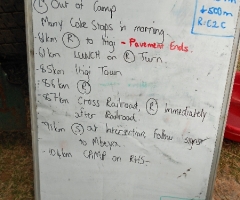 (L) Out of Camp
Many Coke Stops in morning.
61km (R) to Ihgi - Pavement Ends.
61km LUNCH on (R) Turn.
85km Ihgi Town
86 (R)
87km Cross Railroad, (R) immediately
after Railroad.
91km (S) at Intersection, Follow signs
to Mbeya.
104km CAMP on RHS-
500m
R:EZC